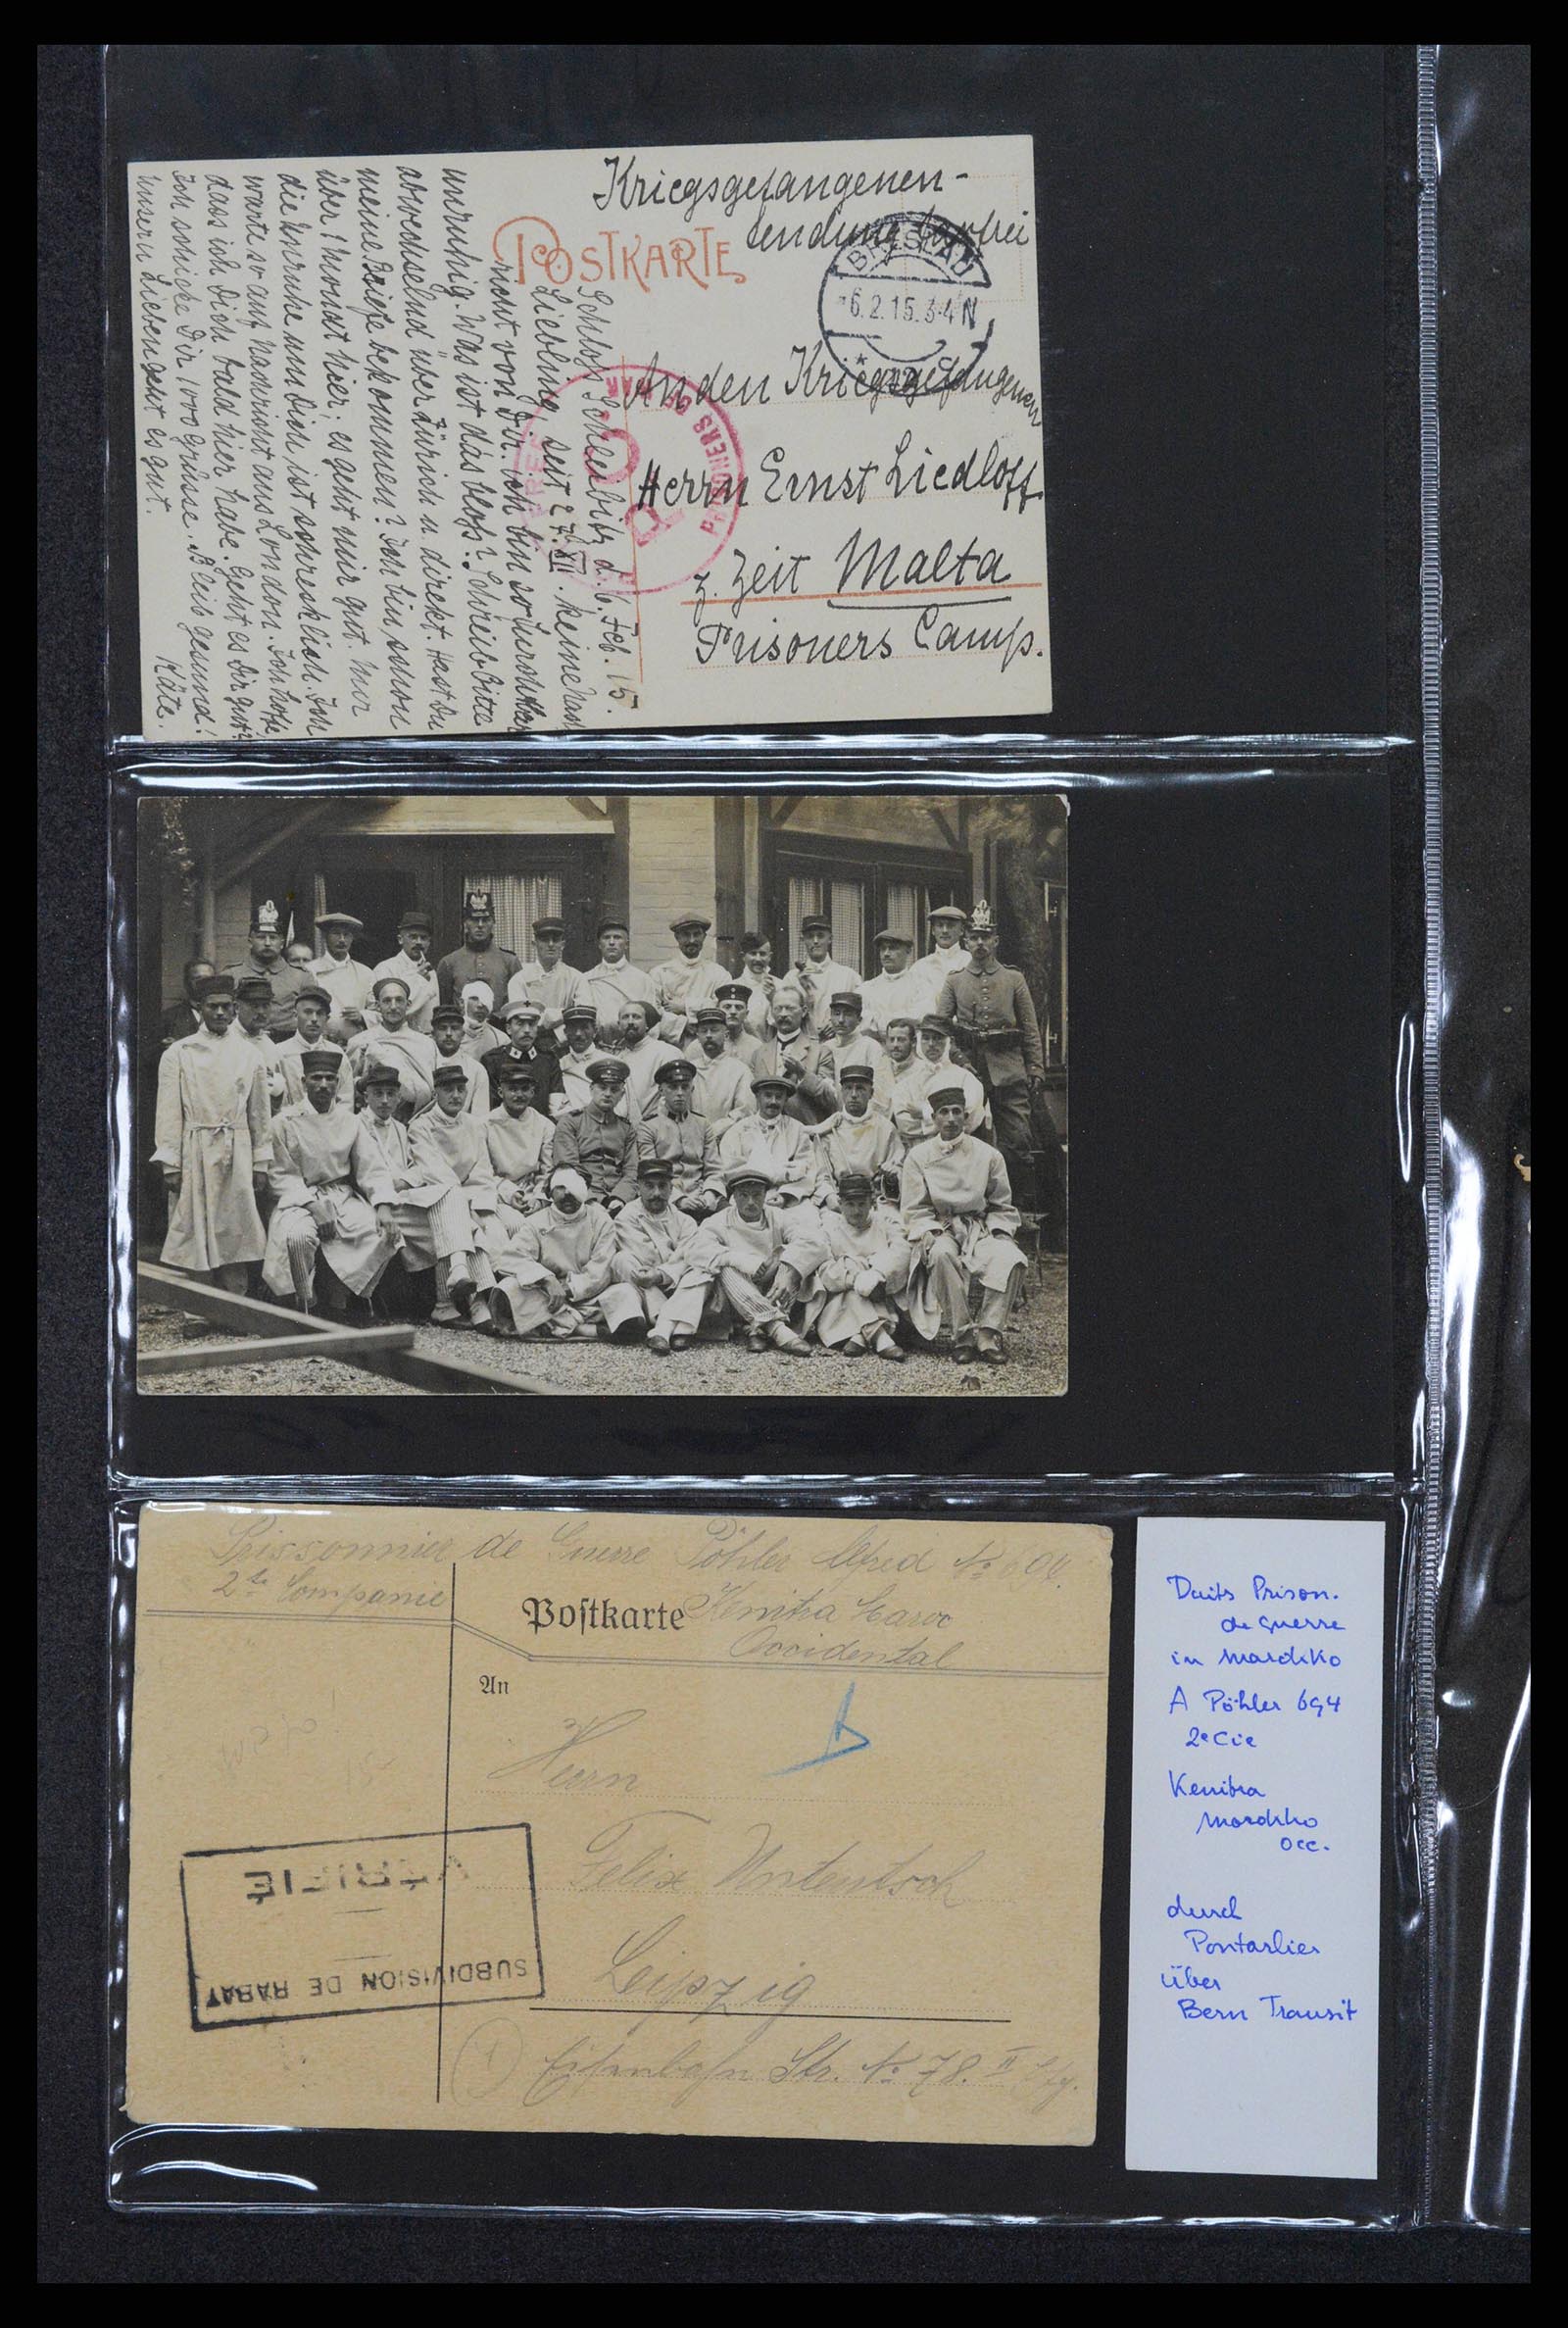 Kriegsgefangenen-
sendung portofrei
POSTKARTE
BRESLAU
-6.2.15.3-4N
An den Kriegsgefangenen
Herrn Ernst Liedloff
z. Zeit Malta
Prisoners Camp.
PRISONERS OF WAR
Schloss Schleibitz d. 6. Feb. 15.
Liebling, seit 27. XII. keine Nach
richt von Dir. ich bin so
unruhig. Was ist das bloss? Schreib bitte
abwechselnd über Zürich u. direkt. Hast Du
meine Briefe bekommen? Ich bin schon
über 1 Monat hier; es geht mir gut. Nur
die Unruhe um Dich ist schrecklich. Ich
warte so auf Nachricht aus London. Ich hoffe,
dass ich Dich bald hier habe. Geht es Dir gut?
Ich schicke Dir 1000 Grüsse. Bleib gesund!
Unsern Lieben geht es gut.
Käte.
Prissonnier de Guerre Pöhler Alfred No 694.
2te Companie
Postkarte
Kenitra Maroc
Occidental
An
Herrn
Felix
Leipzig
Eisenbahn Str. No 78. II
SUBDIVISION DE RABAT
Duits Prison.
de guerre
in Marokko
A Pöhler 694
2e Cie
Kenitra
Marokko
occ.
durch
Pontarlier
über
Bern Transit